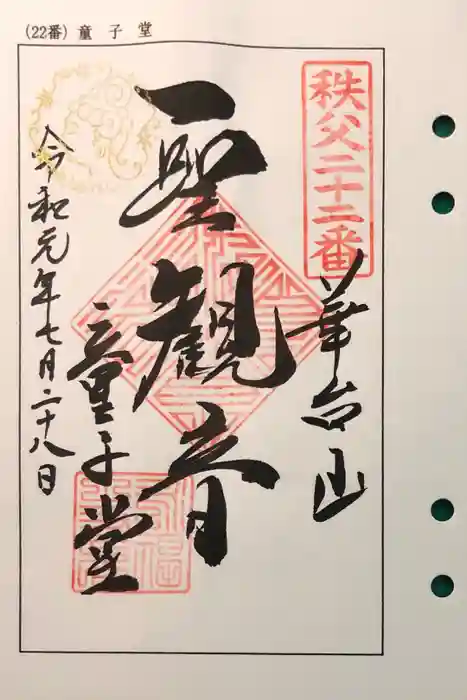 (22番) 童子堂
秩父二十二番
華台山
聖観音
童子堂
令和元年七月二十八日